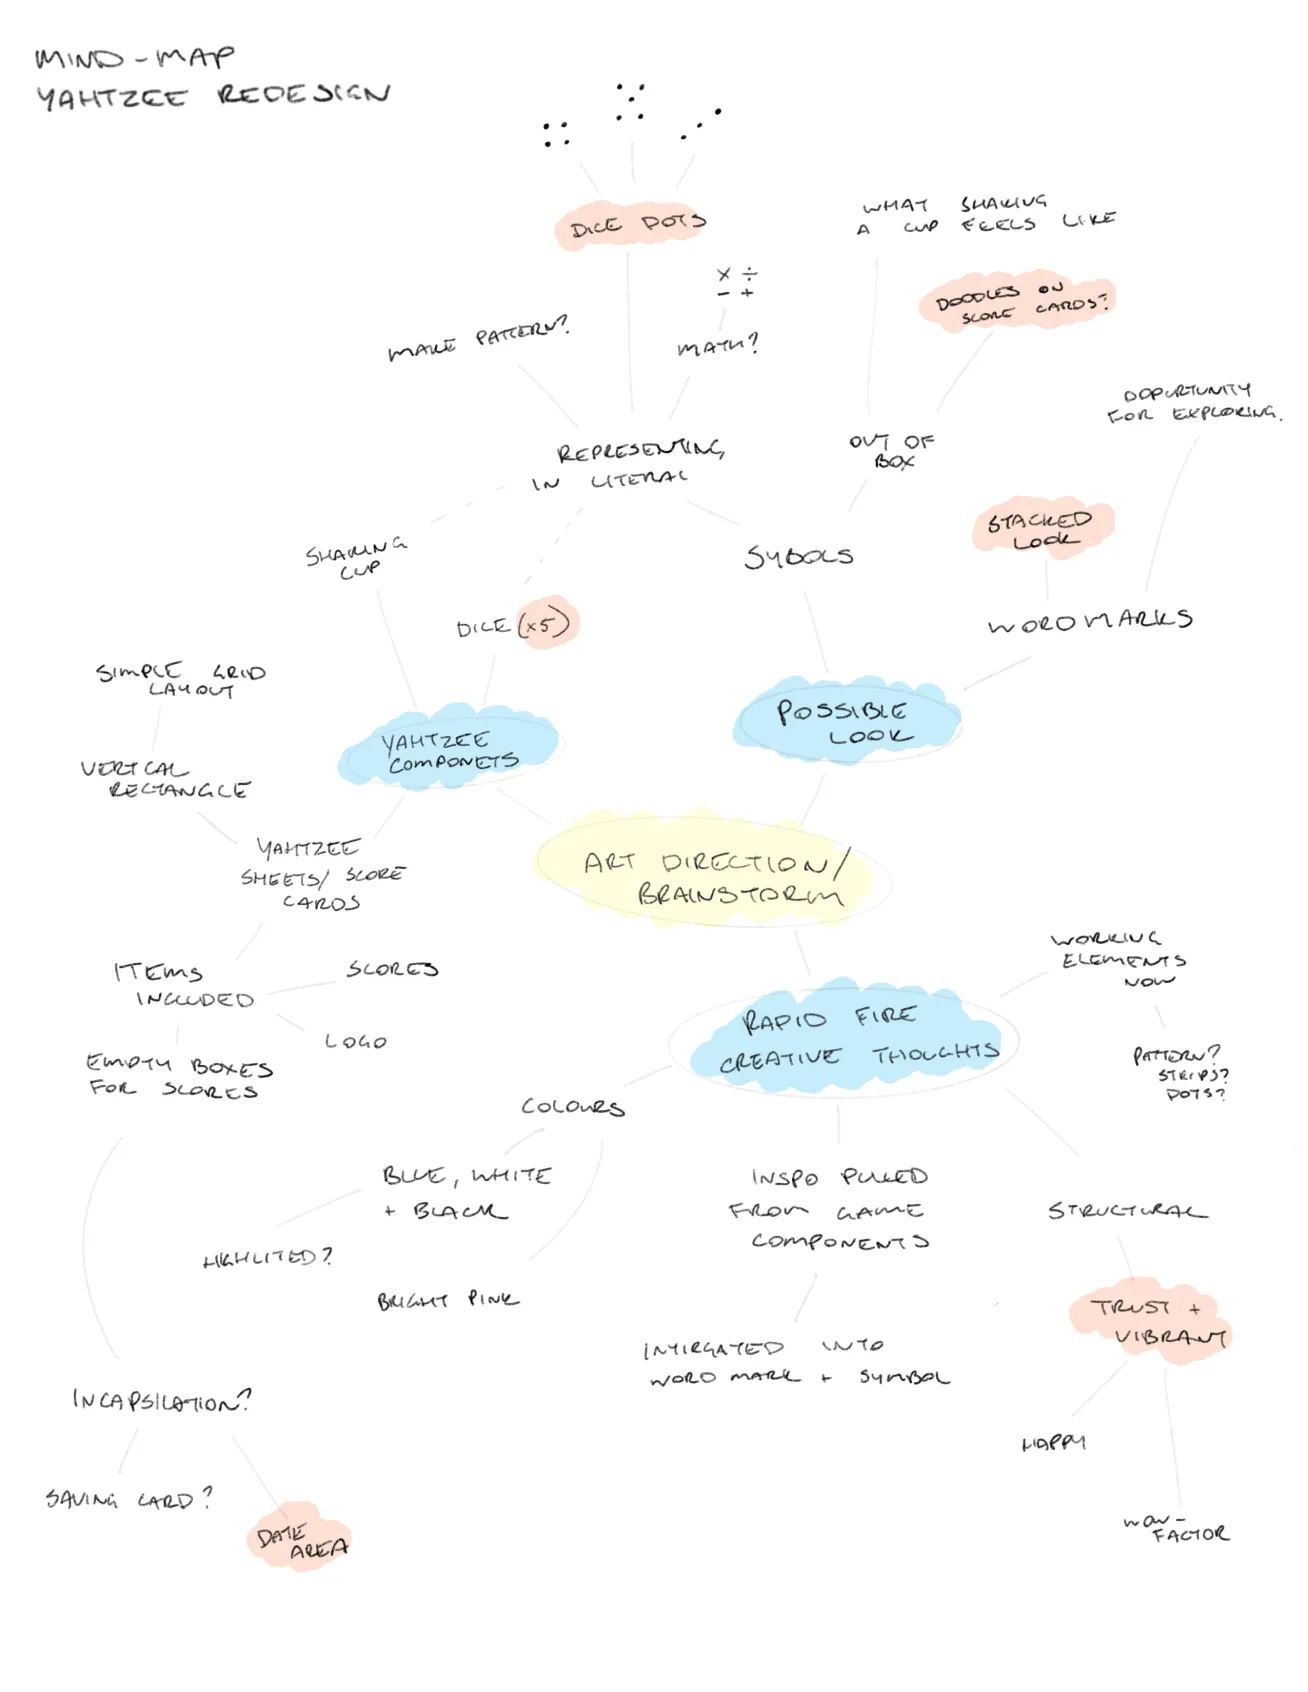 MIND-MAP
YAHTZEE REDESIGN
DICE DOTS
WHAT SHAKING
A CUP FEELS LIKE
× ÷
- +
DOODLES ON
SCORE CARDS?
MAKE PATTERN?
MATH?
OOPURTUNITY
FOR EXPLORING.
REPRESENTING
IN LITERAL
OUT OF
BOX
STACKED
LOOK
SHAKING
CUP
SYBOLS
DICE (x5)
WORDMARKS
SIMPLE GRID
LAYOUT
POSSIBLE
LOOK
YAHTZEE
COMPONETS
VERTICAL
RECTANGLE
YAHTZEE
SHEETS/ SCORE
CARDS
ART DIRECTION/
BRAINSTORM
WORKING
ELEMENTS
NOW
ITEMS
INCLUDED
SCORES
LOGO
RAPID FIRE
CREATIVE THOUGHTS
EMPTY BOXES
FOR SCORES
PATTERN?
STRIPS?
DOTS?
COLOURS
BLUE, WHITE
+ BLACK
INSPO PULLED
FROM GAME
COMPONENTS
STRUCTURAL
HIGHLITED?
BRIGHT PINK
TRUST +
VIBRANT
INTIRGATED INTO
WORD MARK + SYMBOL
INCAPSILATION?
HAPPY
SAVING CARD?
DATE
AREA
WOW-
FACTOR